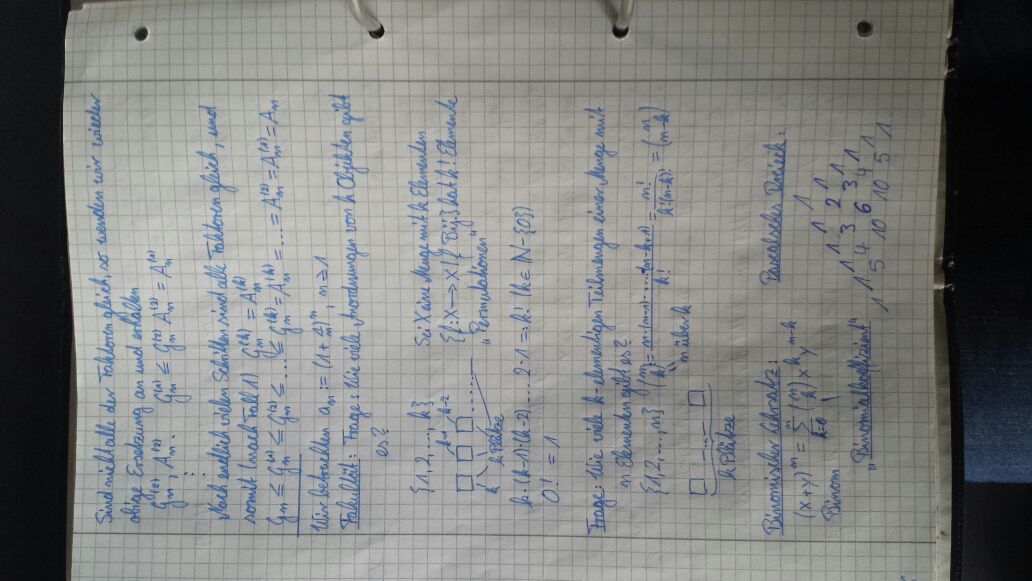 Sind nicht alle der Faktoren gleich, so wenden wir wieder
obige Ersetzung an und erhalten
G_n^(2), A_n^(2): G_n^(1) ≤ G_n^(2) A_n^(2) = A_n^(1)
⋮
Nach endlich vielen Schritten sind alle Faktoren gleich, und
somit (nach Fall 1) G_n^(k) = A_n^(k)
G_n ≤ G_n^(1) ≤ G_n^(2) ≤ .... ≤ G_n^(k) = A_n^(k) = ... = A_n^(2) = A_n^(1) = A_n
Wir betrachten a_n := (1 + 1/n)^n, n ≥ 1
Fakultät: Frage: Wie viele Anordnungen von k Objekten gibt
es?
{1, 2, ..., k}
□ □ □ □ ......
k k-1 k-2
k Plätze
Sei X eine Menge mit k Elementen
{f: X → X | f Bij.} hat k! Elemente
"Permutationen"
k·(k-1)·(k-2)·....·2·1 =: k! (k ∈ ℕ-{0})
0! = 1
Frage: Wie viele k-elementigen Teilmengen einer Menge mit
n Elementen gibt es?
{1, 2, ..., n} (n k) := n·(n-1)·....·(n-k+1)/k! = n!/k!(n-k)! = (n n-k)
"n über k"
□ ... □
k Plätze
Binomischer Lehrsatz:
(x+y)^n = Σ_{k=0}^n (n k) x^k y^(n-k)
Binom
"Binomialkoeffizient"
Pascalsches Dreieck:
1
1 1
1 2 1
1 3 3 1
1 4 6 4 1
1 5 10 10 5 1